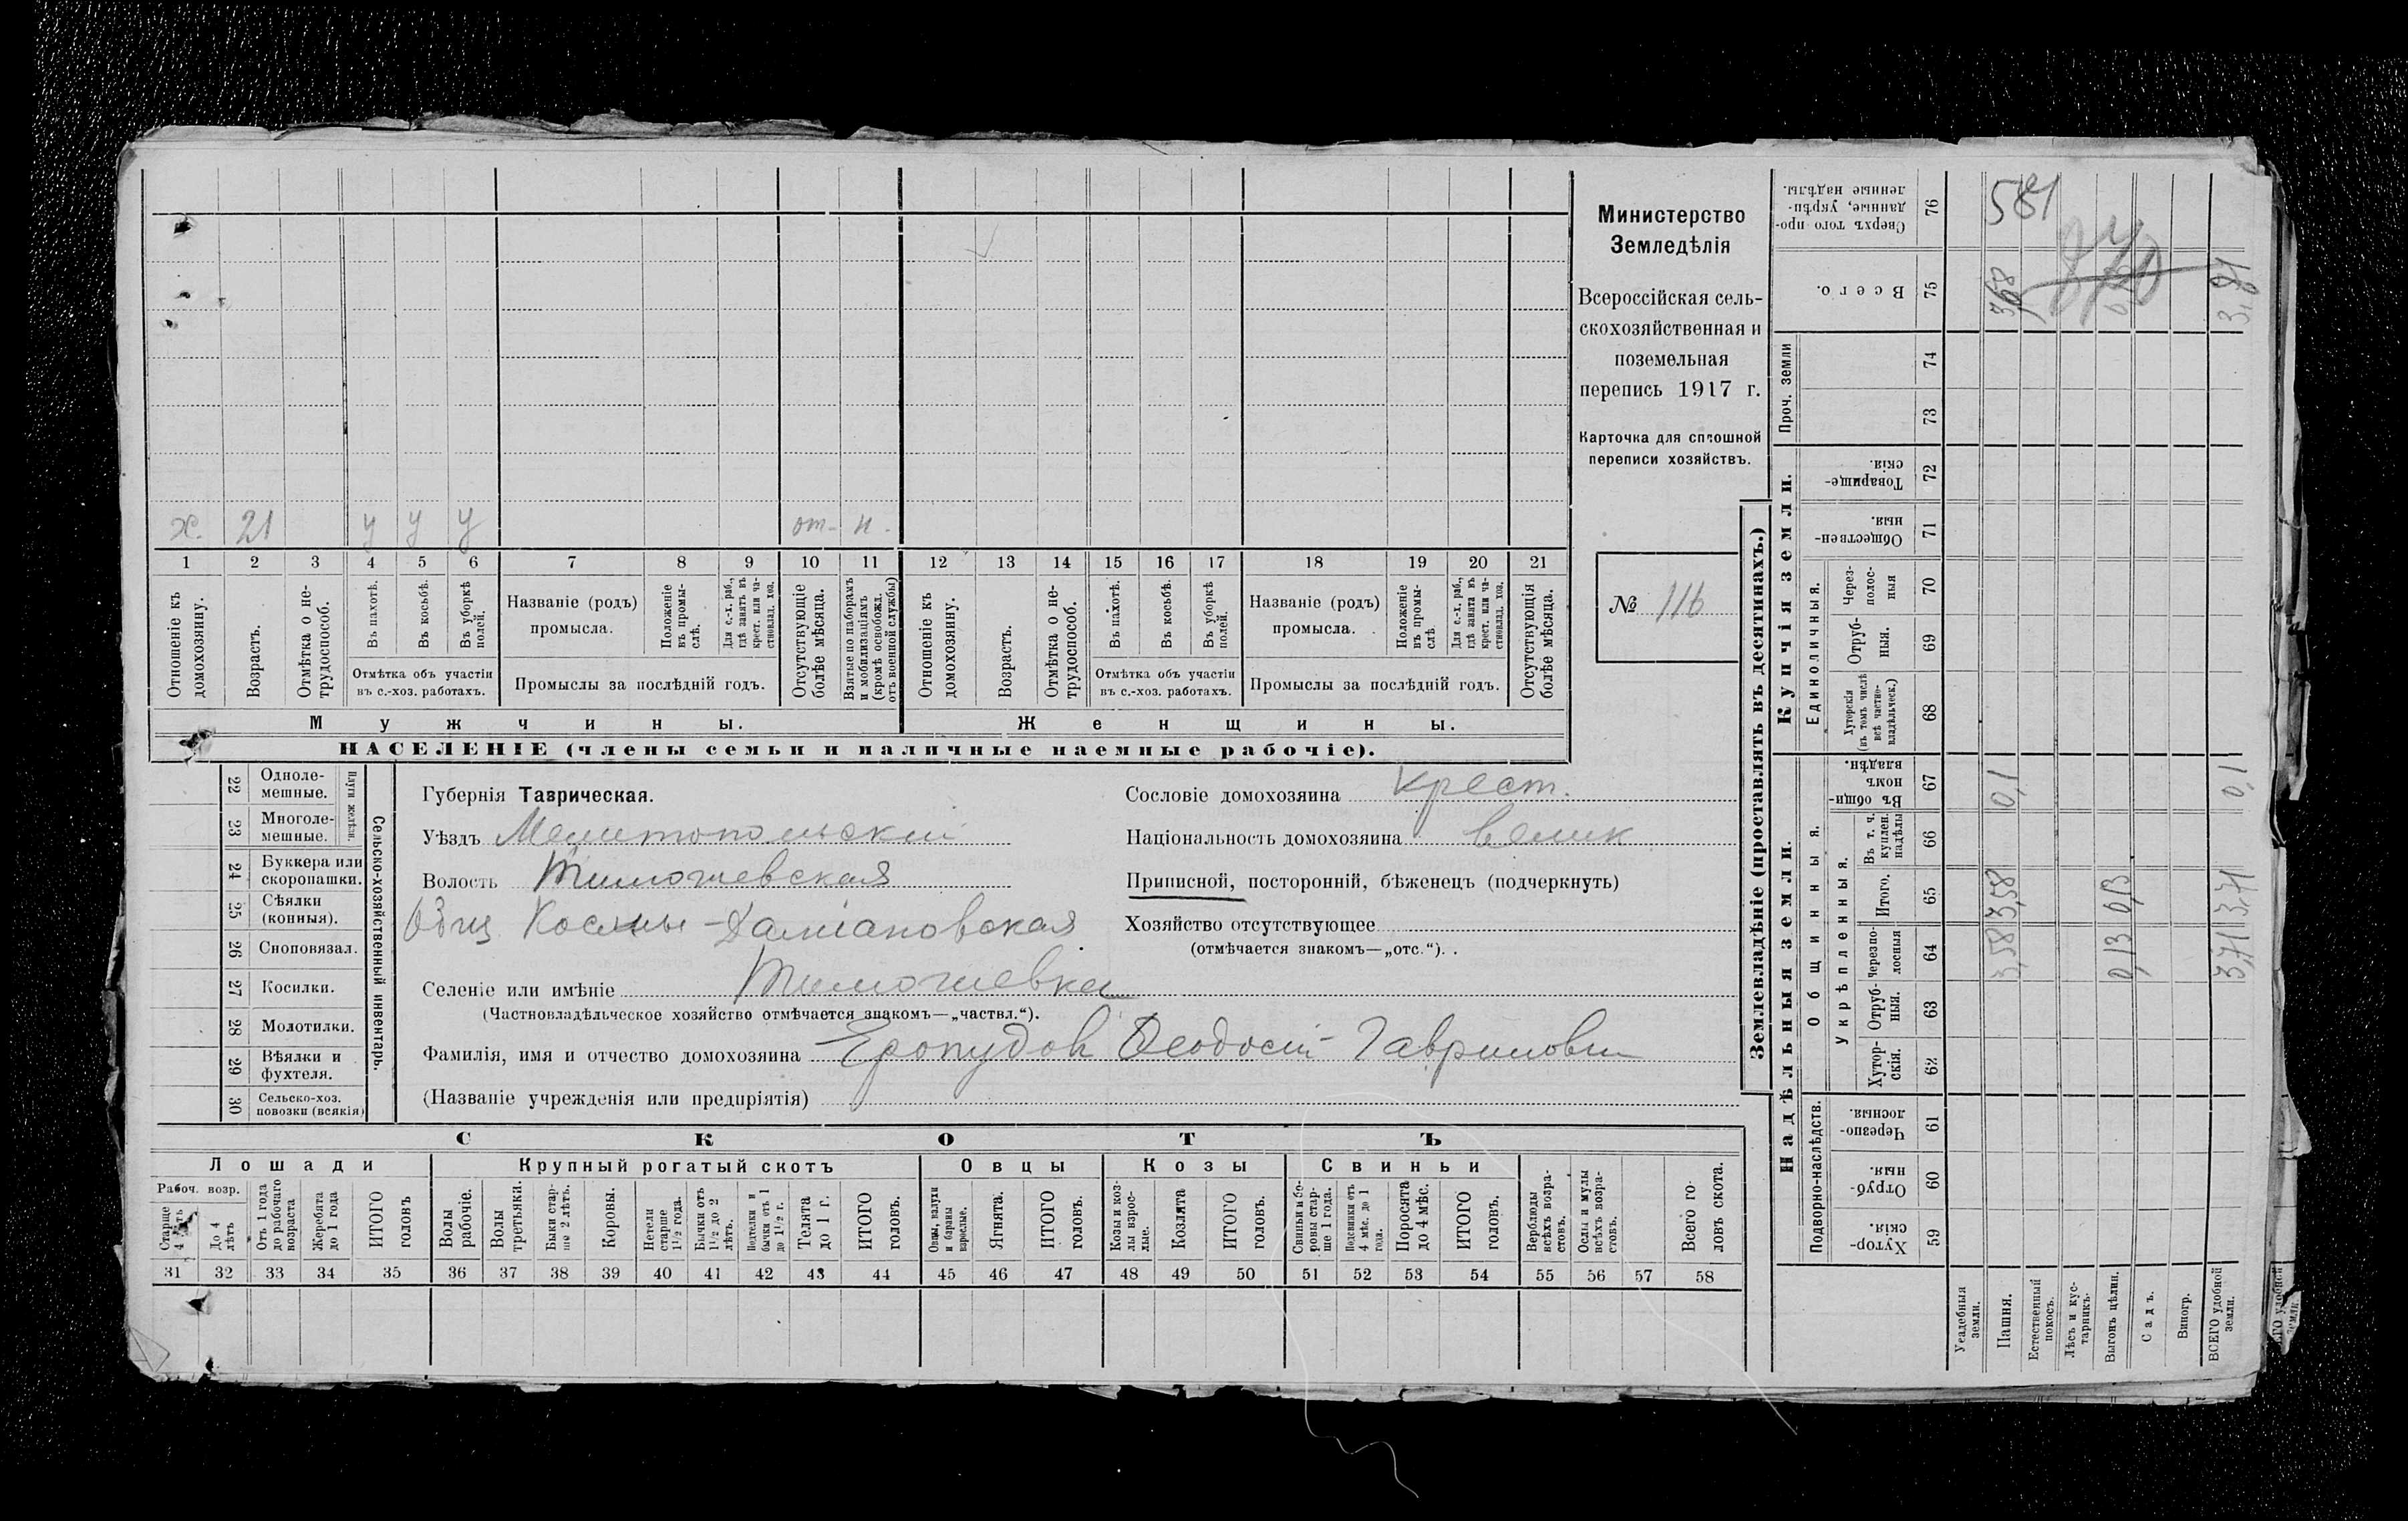 х. 21 у у у от- н.
1 2 3 4 5 6 7 8 9 10 11 12 13 14 15 16 17 18 19 20 21
Отношеніе къ домохозяину.
Возрастъ.
Отмѣтка о не-трудоспособ.
Въ пахотѣ.
Въ косьбѣ.
Въ уборкѣ полей.
Отмѣтка объ участіи
въ с.-хоз. работахъ.
Названіе (родъ)
промысла.
Положеніе въ промы-слѣ.
Для с.-х. раб., гдѣ занятъ въ крест. или ча-стновлад. хоз.
Промыслы за послѣдній годъ.
Отсутствующіе болѣе мѣсяца.
Взятые по наборамъ и мобилизаціямъ (кромѣ освобожд. отъ военной службы)
Отношеніе къ домохозяину.
Возрастъ.
Отмѣтка о не-трудоспособ.
Въ пахотѣ.
Въ косьбѣ.
Въ уборкѣ полей.
Отмѣтка объ участіи
въ с.-хоз. работахъ.
Названіе (родъ)
промысла.
Положеніе въ промы-слѣ.
Для с.-х. раб., гдѣ занята въ крест. или ча-стновлад. хоз.
Промыслы за послѣдній годъ.
Отсутствующія болѣе мѣсяца.
Мужчины. Женщины.
НАСЕЛЕНІЕ (члены семьи и наличные наемные рабочіе).
Министерство
Земледѣлія
Всероссійская сель-
скохозяйственная и
поземельная
перепись 1917 г.
Карточка для сплошной
переписи хозяйствъ.
№ 116
22 Одноле-мешные.
23 Многоле-мешные.
Плуги желѣзн.
24 Буккера или скоропашки.
25 Сѣялки (конныя).
26 Сноповязал.
27 Косилки.
28 Молотилки.
29 Вѣялки и фухтеля.
30 Сельско-хоз. повозки (всякія)
Сельско-хозяйственный инвентарь.
Губернія Таврическая.
Уѣздъ Мелитопольскій
Волость Тимошевская
Общ Космы-Даміановская
Селеніе или имѣніе Тимошевка
(Частновладѣльческое хозяйство отмѣчается знакомъ—„частвл.“).
Фамилія, имя и отчество домохозяина Еропудов Феодосій Гаврилови
(Названіе учрежденія или предпріятія)
Сословіе домохозяина Крест.
Національность домохозяина велик
Приписной, посторонній, бѣженецъ (подчеркнуть)
Хозяйство отсутствующее
(отмѣчается знакомъ—„отс.“).
СКОТЪ
Лошади Крупный рогатый скотъ Овцы Козы Свиньи
Рабоч. возр.
Старше 4 лѣтъ
До 4 лѣтъ
Отъ 1 года до рабочаго возраста
Жеребята до 1 года
ИТОГО головъ
Волы рабочіе.
Волы третьяки.
Быки стар-ше 2 лѣтъ.
Коровы.
Нетели старше 1 1/2 года.
Бычки отъ 1 1/2 до 2 лѣтъ.
Подтелки и бычки отъ 1 до 1 1/2 г.
Телята до 1 г.
ИТОГО головъ.
Овцы, валухи и бараны взрослые.
Ягнята.
ИТОГО головъ.
Козы и коз-лы взрос-лые.
Козлята
ИТОГО головъ.
Свиньи и бо-ровы стар-ше 1 года.
Подсвинки отъ 4 мѣс. до 1 года.
Поросята до 4 мѣс.
ИТОГО головъ.
Верблюды всѣхъ возра-стовъ.
Ослы и мулы всѣхъ возра-стовъ.
Всего го-ловъ скота.
31 32 33 34 35 36 37 38 39 40 41 42 43 44 45 46 47 48 49 50 51 52 53 54 55 56 57 58
Землевладѣніе (проставлять въ десятинахъ.)
Надѣльныя земли. Купчія земли.
Подворно-наслѣдств.
Общинныя.
Укрѣпленныя.
Единоличныя.
Проч. земли
Хутор-скія. 59
Отруб-ныя. 60
Черезпо-лосныя. 61
Хутор-скія. 62
Отруб-ныя. 63
Черезпо-лосныя 64
Итого. 65
Въ т. ч. куплен. надѣлы 66
Въ общи-номъ владѣн. 67
Хуторскія (въ томъ числѣ всѣ частно-владѣльческ.) 68
Отруб-ныя. 69
Через-полос-ныя 70
Обществен-ныя. 71
Товарище-скія. 72
73
74
Всего. 75
Сверхъ того про-данные, укрѣп-ленные надѣлы. 76
Усадебныя земли.
Пашня. 3,58 3,58 0,1 368 581
Естественный покосъ.
Лѣсъ и кус-тарникъ.
Выгонъ цѣлин. 0,13 0,13
Садъ.
Виногр.
ВСЕГО удобной земли. 3,71 3,71 0,1